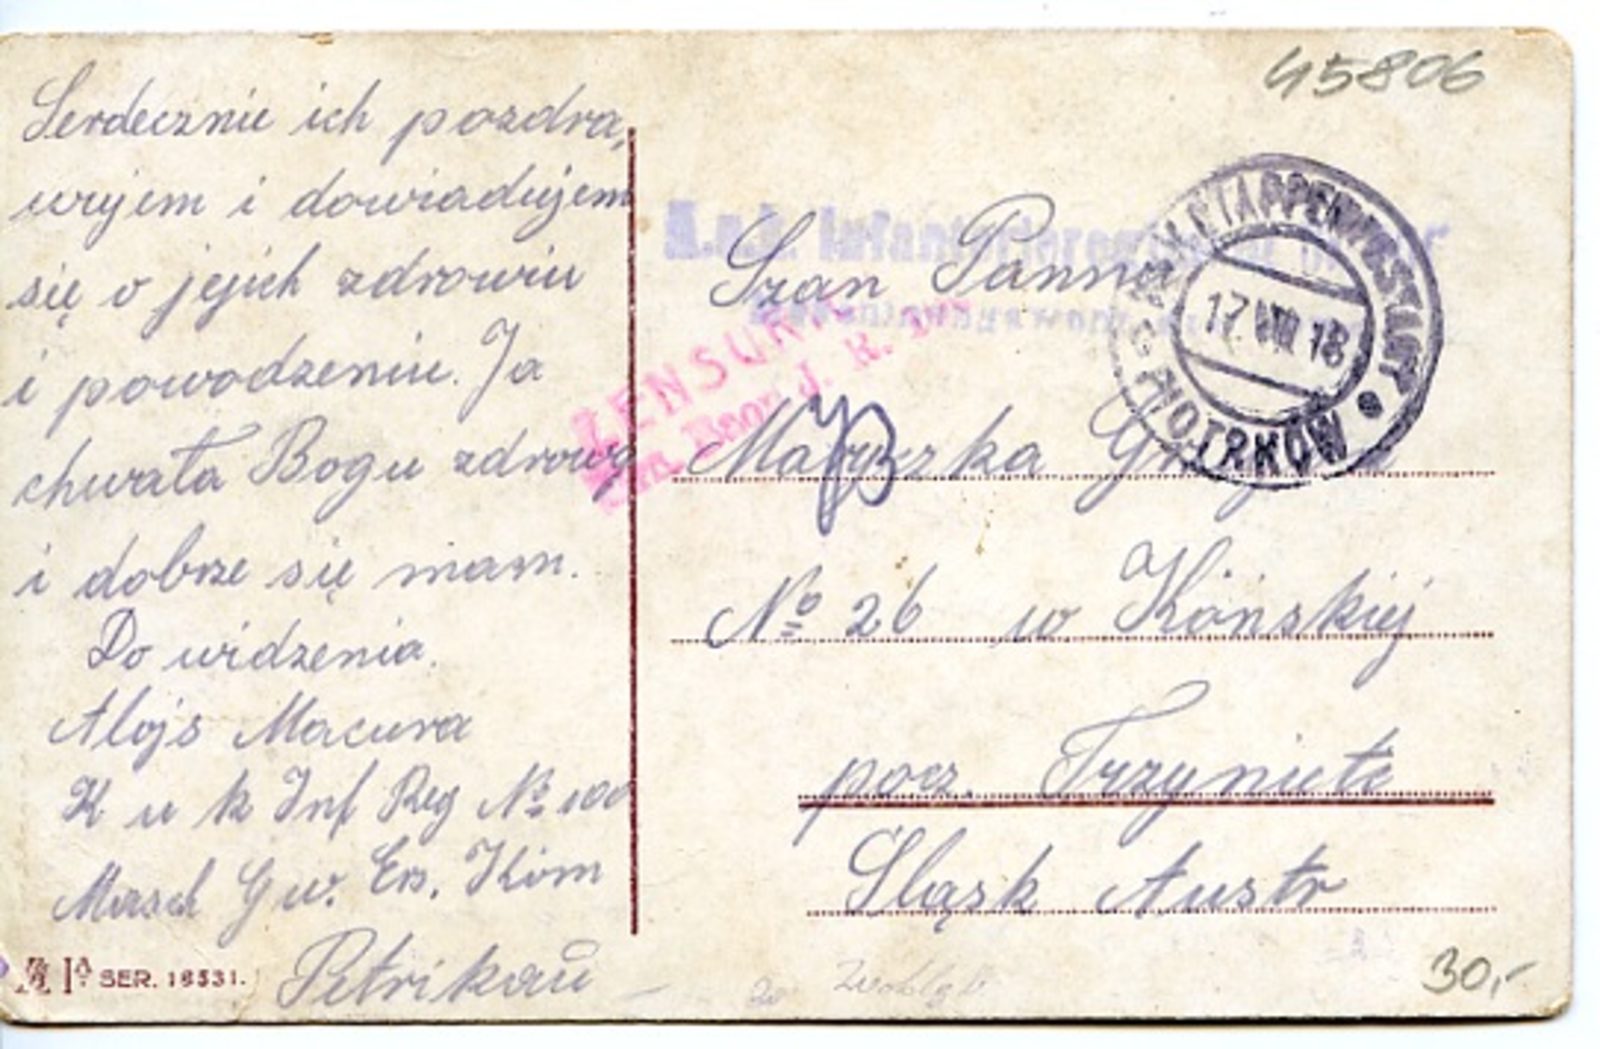 45806
Serdecznie ich pozdra,
wujem i dowiadujem
się o jejich zdrowiu
i powodzeniu. Ja
chwała Bogu zdrowy
i dobrze się mam.
Do widzenia.
Alojs Macura
K u k Inf Reg No 100
Marsch Gw. Ers. Kom
Petrikau
SER. 16531.
K.u.k. Infanterieregiment
ZENSUR
K.u.K. ETAPPENPOSTAMT
17 VIII 18
PIOTRKÓW
Szan Panna
Maryszka
No 26 w Kónskiej
pocz. Trzynietz
Śląsk Austr
30,-